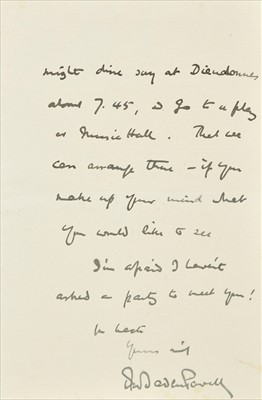 might dine say at Dieudonnes
about 7.45, & go to a play
or Music Hall. That we
can arrange there - if you
make up your mind what
you would like to see
I'm afraid I haven't
asked a party to meet you!
In haste
Yours
RS Baden Powell